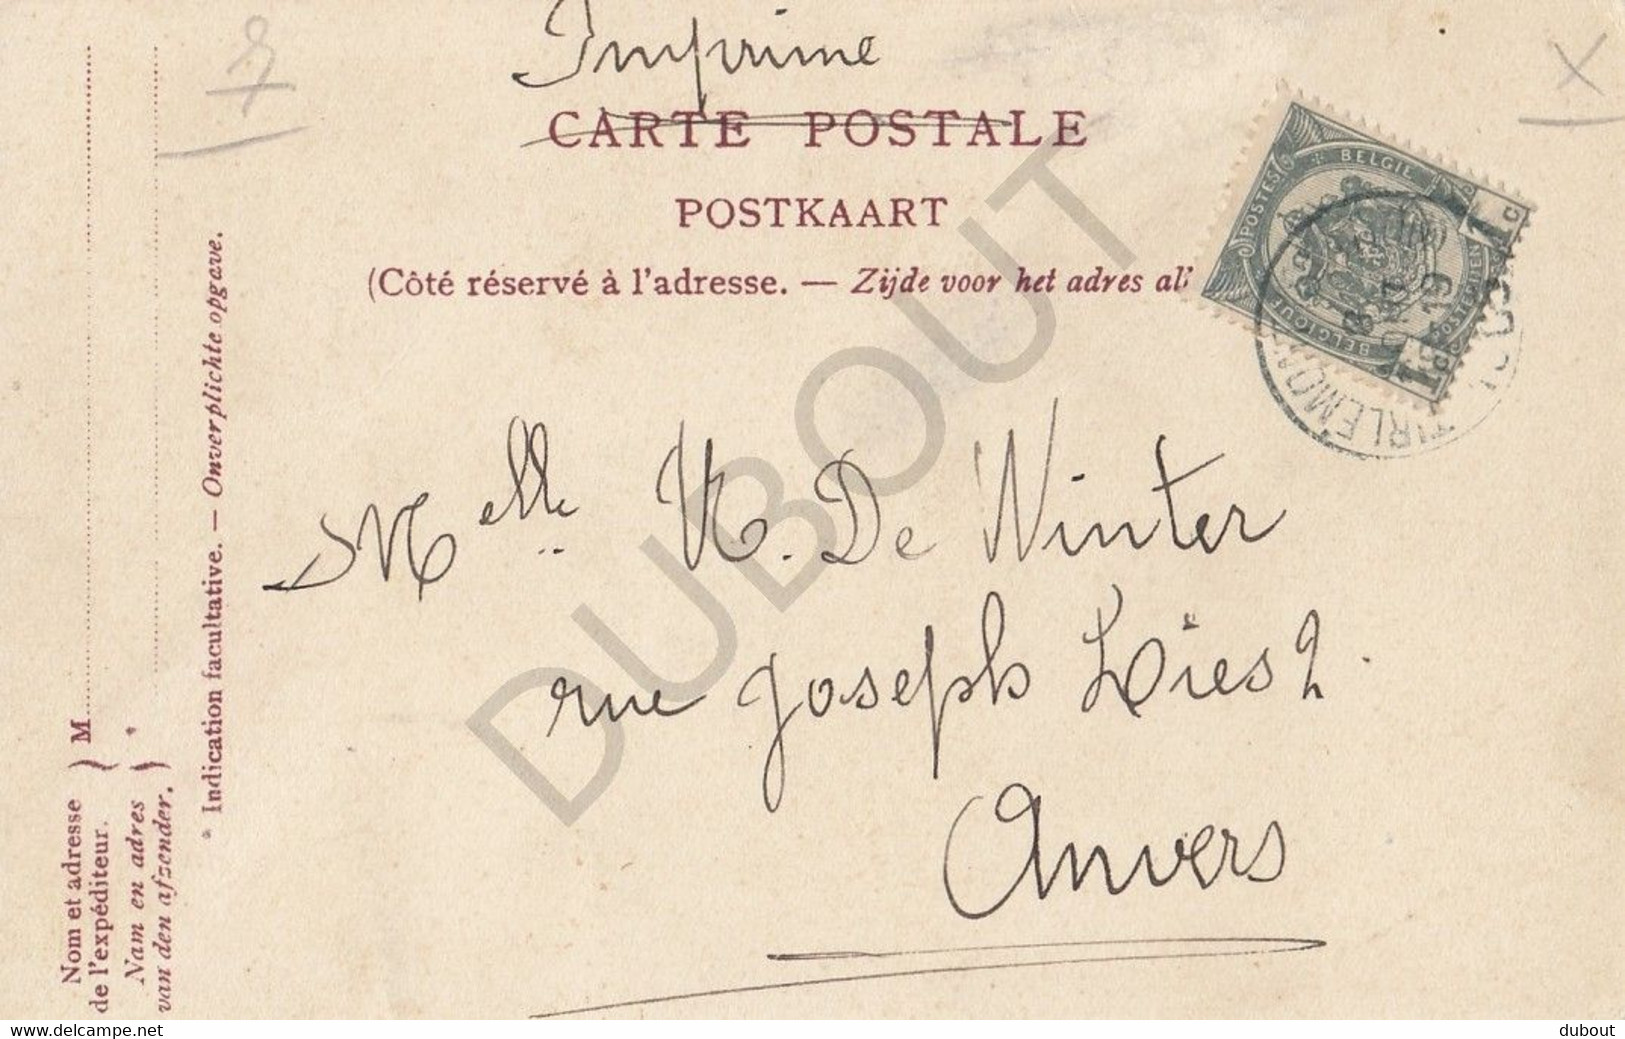 Imprime
CARTE POSTALE
POSTKAART
(Côté réservé à l'adresse. — Zijde voor het adres
POSTES BELGIE
BELGIQUE POSTERIJEN
1c
1c
TIRLEMO
19
Melle De Winter
rue Joseph Lies 2.
Anvers
Nom et adresse
de l'expéditeur. } M
Nam en adres
van den afzender. } *
* Indication facultative. — Onverplichte opgave.
DUBOUT
delcampe.net
dubout